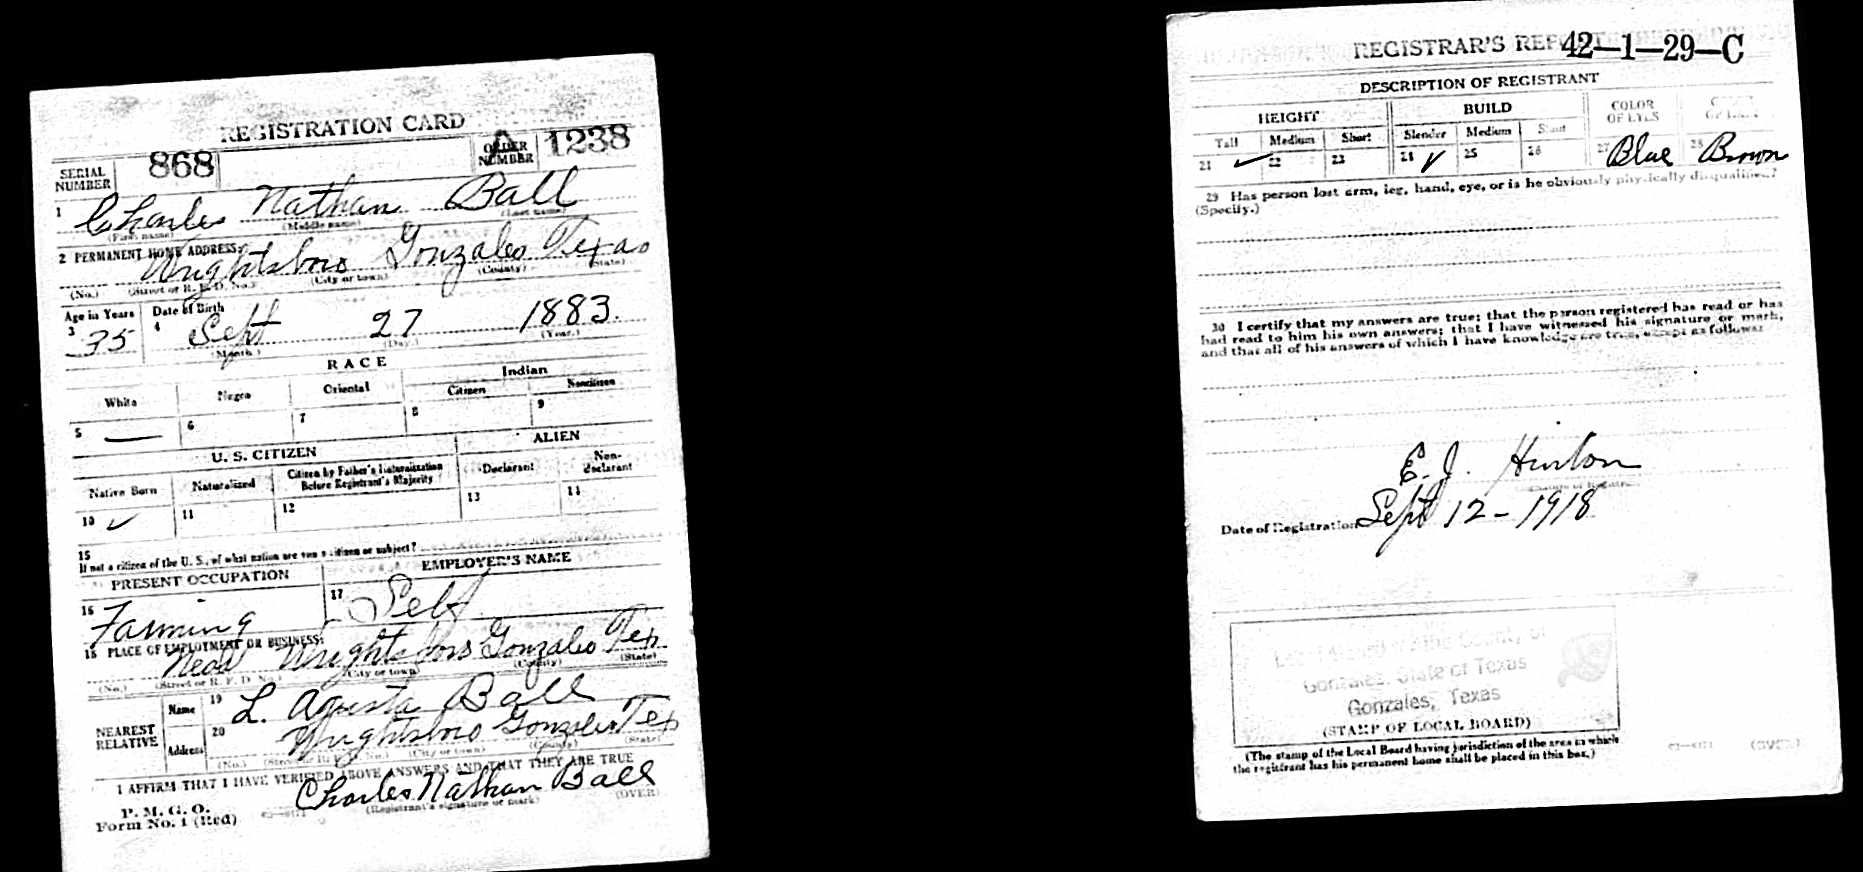 REGISTRATION CARD
SERIAL NUMBER 868 ORDER NUMBER A 1238
1 Charles Nathan Ball
(First name) (Middle name) (Last name)
2 PERMANENT HOME ADDRESS:
Wrightsboro Gonzales Texas
(No.) (Street or R. F. D. No.) (City or town) (County) (State)
Age in Years Date of Birth
3 35 4 Sept 27 1883.
(Month.) (Day.) (Year.)
RACE
White Negro Oriental Indian
Citizen Noncitizen
5 — 6 7 8 9
U. S. CITIZEN ALIEN
Native Born Naturalized Citizen by Father's Naturalization Before Registrant's Majority Declarant Non-declarant
10 ✓ 11 12 13 14
15
If not a citizen of the U. S., of what nation are you a citizen or subject?
PRESENT OCCUPATION EMPLOYER'S NAME
16 Farming 17 Self
18 PLACE OF EMPLOYMENT OR BUSINESS:
Near Wrightsboro Gonzales Tex
(No.) (Street or R. F. D. No.) (City or town) (County) (State)
NEAREST RELATIVE Name 19 L. Agusta Ball
Address 20 Wrightsboro Gonzales Tex
(No.) (Street or R. F. D. No.) (City or town) (County) (State)
I AFFIRM THAT I HAVE VERIFIED ABOVE ANSWERS AND THAT THEY ARE TRUE
P. M. G. O.
Form No. 1 (Red) Charles Nathan Ball
(Registrant's signature or mark) (OVER)
REGISTRAR'S REPORT 42—1—29—C
DESCRIPTION OF REGISTRANT
HEIGHT BUILD COLOR OF EYES
Tall Medium Short Slender Medium Stout
21 ✓ 22 23 24 ✓ 25 26 27 Blue 28 Brown
29 Has person lost arm, leg, hand, eye, or is he obviously physically disqualified?
(Specify.)
30 I certify that my answers are true; that the person registered has read or has
had read to him his own answers; that I have witnessed his signature or mark,
and that all of his answers of which I have knowledge are true, except as follows:
E. J. Hinton
Date of Registration Sept 12 - 1918
Local Board of the County of
Gonzales, State of Texas
Gonzales, Texas
(STAMP OF LOCAL BOARD)
(The stamp of the Local Board having jurisdiction of the area in which
the registrant has his permanent home shall be placed in this box.)
(OVER)